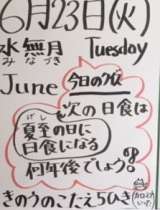 6月23日(火)
水無月 Tuesday
みなづき
June 今日のクイズ
次の日食は
げし
夏至の日に
日食になる
何年後でしょう。
きのうのこたえ 50ひき